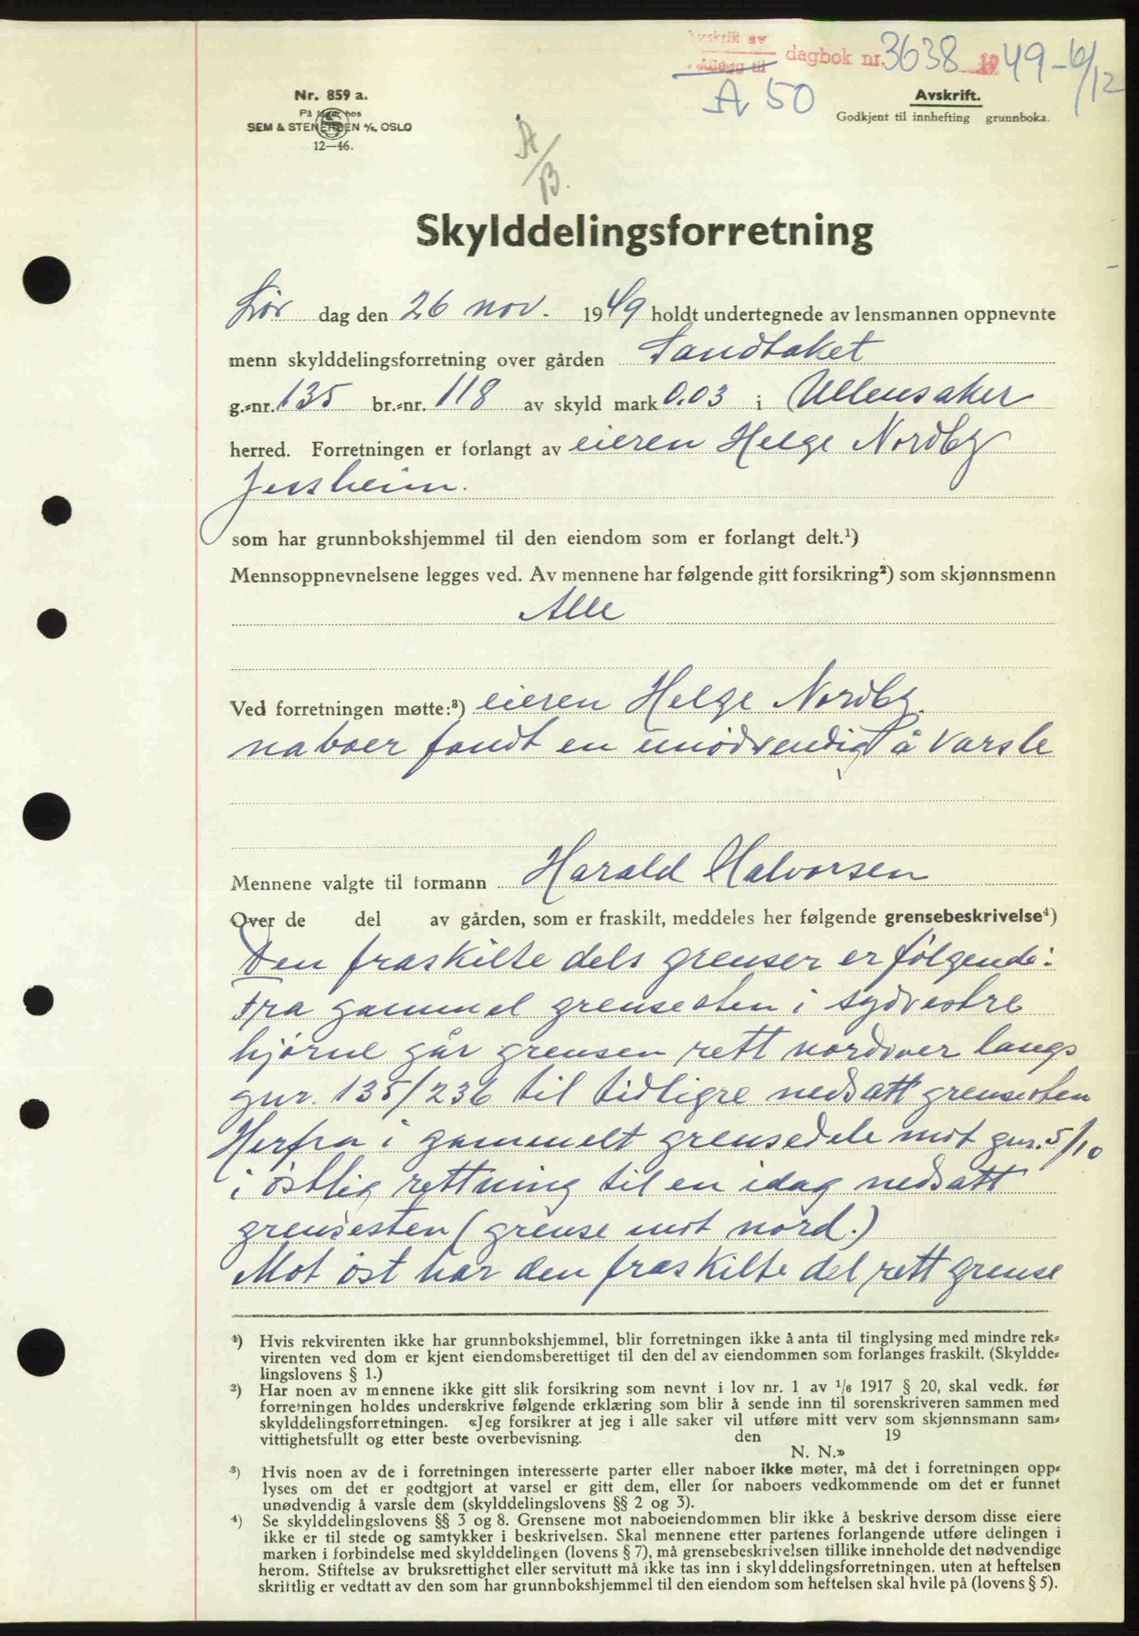 Avskrift av
Vedlegg til dagbok nr. 3638 1949 - 6/12
A 50
Avskrift.
Godkjent til innhefting grunnboka.
Nr. 859 a.
På lager hos
SEM & STENERSEN A/S, OSLO
12—46.
A/B.
Skylddelingsforretning
Lør dag den 26 nov. 1949 holdt undertegnede av lensmannen oppnevnte
menn skylddelingsforretning over gården Sandtaket
g.-nr. 135 br.-nr. 118 av skyld mark 0.03 i Ullensaker
herred. Forretningen er forlangt av eieren Helge Nordby
Jessheim.
som har grunnbokshjemmel til den eiendom som er forlangt delt.¹)
Mennsoppnevnelsene legges ved. Av mennene har følgende gitt forsikring²) som skjønnsmenn
Alle
Ved forretningen møtte:³) eieren Helge Nordby.
naboer fandt en unødvendig å varsle
Mennene valgte til formann Harald Halvorsen
Over de del av gården, som er fraskilt, meddeles her følgende grensebeskrivelse⁴)
Den fraskilte dels grenser er følgende:
Fra gammel grensesten i sydvestre
hjørne går grensen rett nordover langs
gnr. 135/236 til tidligre nedsatt grensesten
Herfra i gammelt grensedele mot gnr. 5/10
i østlig rettning til en idag nedsatt
grensesten (grense mot nord.)
Mot øst har den fraskilte del rett grense
¹) Hvis rekvirenten ikke har grunnbokshjemmel, blir forretningen ikke å anta til tinglysing med mindre rek-
virenten ved dom er kjent eiendomsberettiget til den del av eiendommen som forlanges fraskilt. (Skyldde-
lingslovens § 1.)
²) Har noen av mennene ikke gitt slik forsikring som nevnt i lov nr. 1 av 1/6 1917 § 20, skal vedk. før
forretningen holdes underskrive følgende erklæring som blir å sende inn til sorenskriveren sammen med
skylddelingsforretningen. «Jeg forsikrer at jeg i alle saker vil utføre mitt verv som skjønnsmann sam-
vittighetsfullt og etter beste overbevisning. den 19
N. N.»
³) Hvis noen av de i forretningen interesserte parter eller naboer ikke møter, må det i forretningen opp-
lyses om det er godtgjort at varsel er gitt dem, eller for naboers vedkommende om det er funnet
unødvendig å varsle dem (skylddelingslovens §§ 2 og 3).
⁴) Se skylddelingslovens §§ 3 og 8. Grensene mot naboeiendommen blir ikke å beskrive dersom disse eiere
ikke er til stede og samtykker i beskrivelsen. Skal mennene etter partenes forlangende utføre delingen i
marken i forbindelse med skylddelingen (lovens § 7), må grensebeskrivelsen tillike inneholde det nødvendige
herom. Stiftelse av bruksrettighet eller servitutt må ikke tas inn i skylddelingsforretningen, uten at heftelsen
skriftlig er vedtatt av den som har grunnbokshjemmel til den eiendom som heftelsen skal hvile på (lovens § 5).